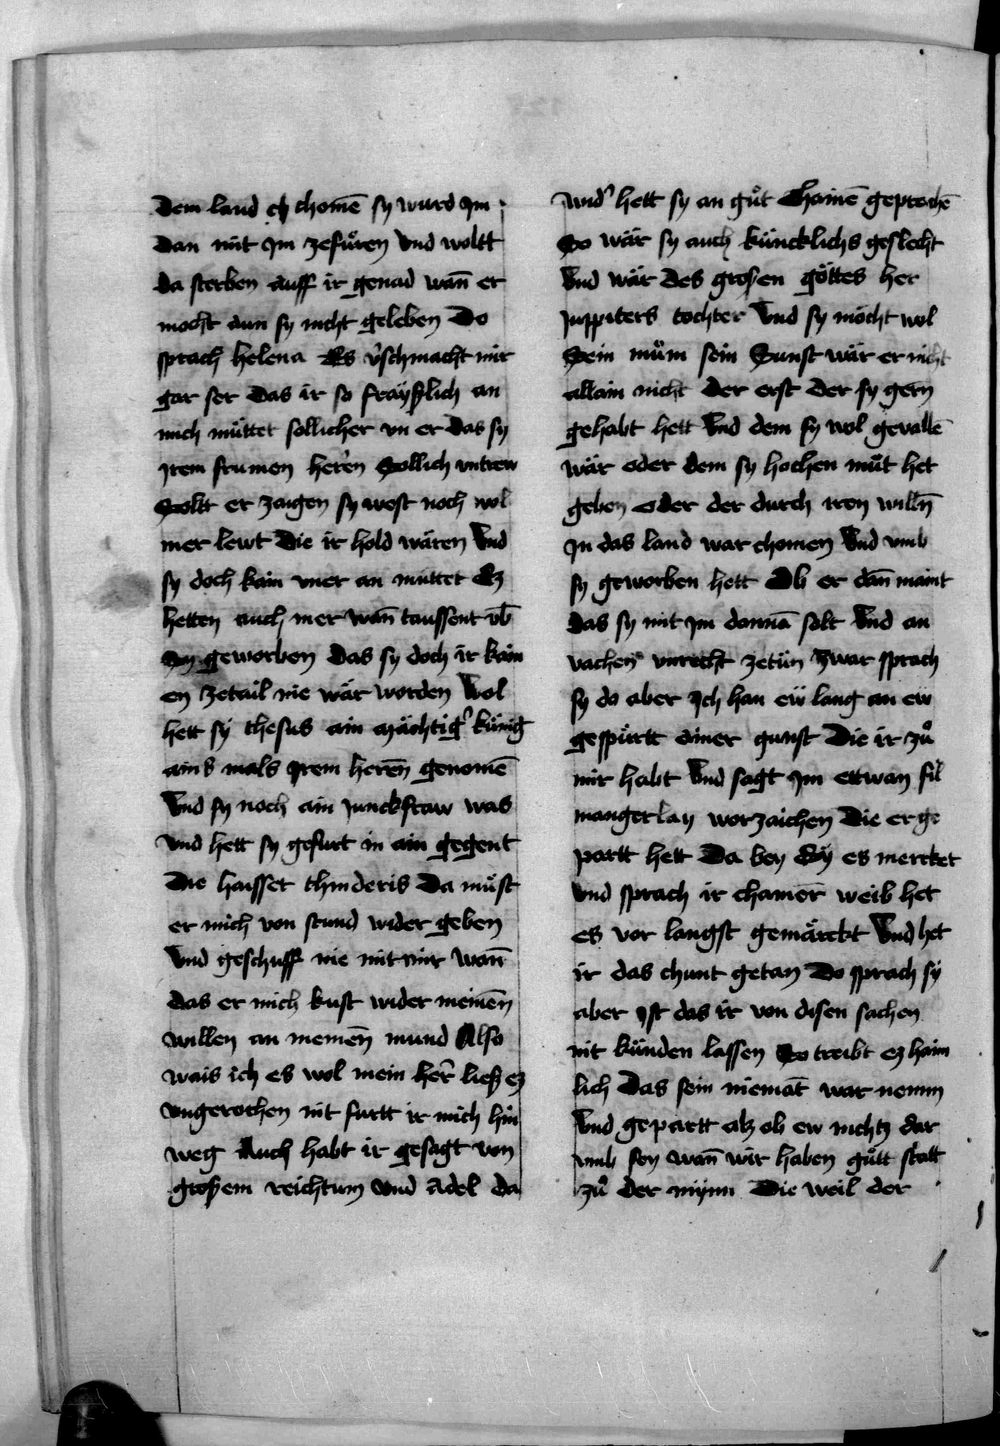 dem land ch chomē sy wurd Im
dan mit Im zefüren Vnd woltt
da sterben auff ir genad wañ er
mocht aun sy nicht geleben Do
sprach helena Es v̾schmacht mir
gar ser das ir so fräyßlich an
mich müttet sollicher vn er das sy
Irem frumen heren Sollich vntrew
Soltt er zaigen sy west noch wol
mer lewt Die ir hold wären Vnd
sy doch kain vner an müttet Ez
hetten auch mer wañ taussent vb̄
Sy geworben das sy doch ir kain
en zetail nie wär worden Wol
hett sy thesus ain mächtig̾ künig
ains mals Irem herēn genomē
Vnd sy noch ain Junckfraw was
vnd hett sy gefurt in ain gegent
Die haisset thinderis Da müst
er mich von stund wider geben
Vnd geschuff nie mit mir wañ
das er mich kust wider meinēn
willen an meinēn mund Also
wais ich es wol mein her̄ ließ ez
vngerochen nit furtt ir mich hin
weg Auch habt ir gesagt von
großem reichtum Vnd adel da
wid̾ hett sy an gůt Chainē geprochē
So wär sy auch küncklichs geslecht
Vnd wär des großen göttes her
Juppiters tochter Vnd sy möcht wol
Sein mům sein Sunst wär er nicht
allain nicht der erst der sy gern
gehabt hett Vnd dem sy wol gevallē
wär oder dem sy hochen můt het
geben oder der durch iren willñ
In das land war chomen Vnd vmb
sy geworben hett Ob er dañ maint
das sy mit Im dannā solt Vnd an
vachen vnrecht zetün Zwar sprach
sy do aber Ich han eẅ lang an ew
gespürtt ainer gunst Die ir zů
mir habt Vnd sagt Im ettwan fil
mangerlay worzaichen Die er ge
partt hett Da bey Sy es mercket
vnd sprach ir chamer̄ weib het
es vor langst gemärckt Vnd het
ir das chunt getan Do sprach sy
aber Ist das ir von disen sachen
nit künden lassen So treibt ez haim
lich Das sein niemāt war nemm
Vnd gepartt alz ob ew nichtz dar
vmb sey wañ wir haben gůtt statt
zů der mynn Die weil der